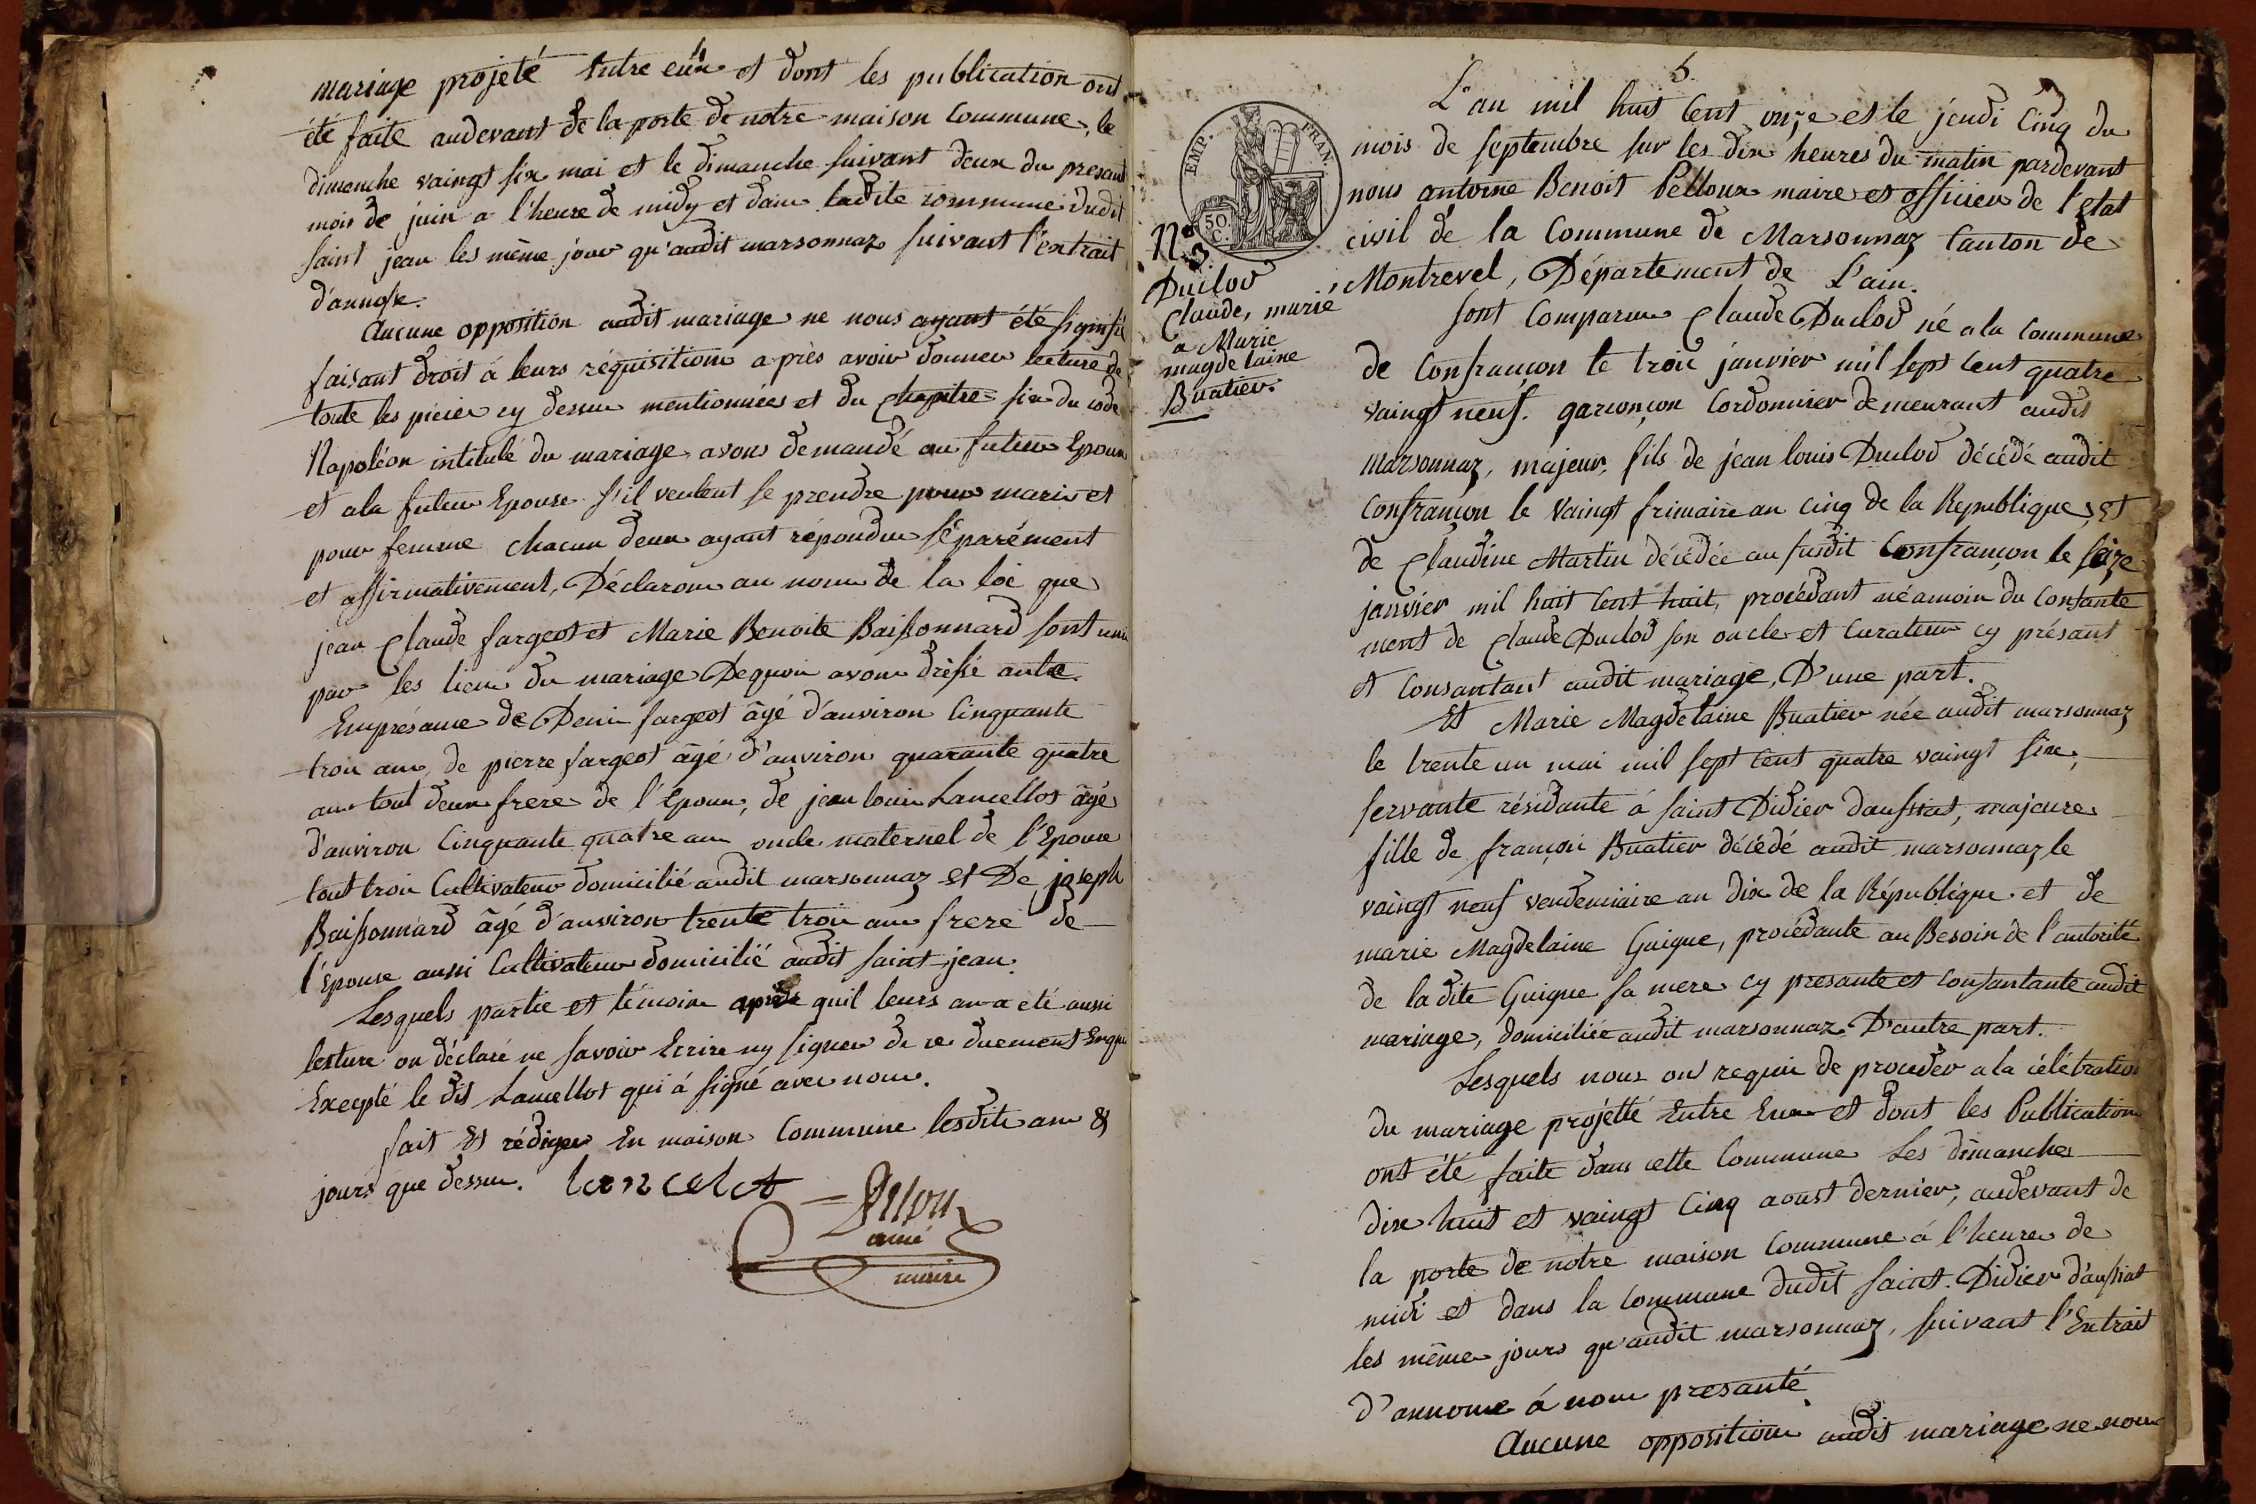 mariage projeté Entre eux et dont les publication ont
été faite audevant de la porte de notre maison Commune, le
dimenche vaingt six mai et le dimanche suivant deux du presant
mois de juin a l'heure de midy et dans ladite commune dudit
saint jean les même jour qu'audit marsonnaz suivant l'extrait
Aucune opposition audit mariage ne nous ayant été signifié
faisant droit á leurs réquisition après avoir donner lecture de
toute les pieces cy dessus mentionnées et du Chapitre six du code
Napoléon intitulé du mariage avons demandé au futur Epoux
et ala futur Epouse s'il veulent se prendre pour mari et
pour femme chacun deux ayant répondu séparément
et affirmativement, Déclarons au nom de la loi que
jean Claude fargeot et Marie Benoite Baissonnard sont uni
par les lien du mariage Dequoi avons dréssé
Emprésance de Denis fargeot âgé d'anviron Cinquante
trois ans, de pierre fargeot âgé d'anviron quarante quatre
ans tout deux frere de l'Epoux, de jean louis Lancellot âgé
d'anviron Cinquante quatre ans oncle maternel de l'Epouse
tout trois Cultivateur domicilié audit marsonnaz et De joseph
Baissonnard âgé d'anviron trente trois ans frere de
l'Epouse aussi Cultivateur domicilié audit saint jean.
Lesquels partie et témoins après quil leurs an a eté aussi
lecture on déclaré ne savoir Ecrire ny signer de ce duement Enqui
Excepté le dit Lancellot qui á signé avec nous.
fait Et rédiger En maison Commune lesdits ans &
jours que dessus. lancelot
ainé
maire
5
EMP. FRAN.
50 C.
N° 3
Duclos
Claude, marié
a Marie
magdelaine
Buatier.
L'an mil huit Cent onze et le jeudi Cinq du
mois de septembre sur les dix heures du matin pardevant
nous antoine Benoit Pelloux maire et officier de l'Etat
civil de la Commune de Marsonnaz Canton de
Montrevel, Département de L'ain.
Sont Comparu Claude Duclos né ala Commune
de Confrançon le trois janvier mil sept Cent quatre
vaingt neuf. garconçon Cordonnier demeurant audit
marsonnaz, majeur, fils de jean louis Duclos décédé audit
Confrançon le Vaingt frimaire an Cinq de la Republique, Et
de Claudine Martin décédée au susdit Confrançon le seize
janvier mil huit Cent huit, procédant néamoin du Consante
ment de Claude Duclos son oncle et Curateur cy présant
et Consantant audit mariage, D'une part.
Et Marie Magdelaine Buatier née audit marsonnaz
le trente un mai mil sept Cent quatre vaingt six,
servante résidante á saint Didier daussiat, majeure
fille de françois Buatier décédé audit marsonnaz le
vaingt neuf vendemiaire an dix de la République. et de
marie Magdelaine Guigue, procédante au Besoin de l'autorité
de ladite Guigue sa mere cy presante et Consantante audit
mariage, domiciliée audit marsonnaz D'autre part.
Lesquels nous on requis de proceder a la célébration
du mariage projetté Entre Eux et dont les Publication
ont été faite dans cette Commune Les dimanches
dix huit et vaingt Cinq aoust dernier, audevant de
la porte de notre maison Commune á l'heure de
midi et dans la Commune dudit saint. Didier d'aussiat
les même jours qu'audit marsonnaz, suivant l'Extrait
d'annonce á nous presanté.
Aucune opposition audit mariage ne nous